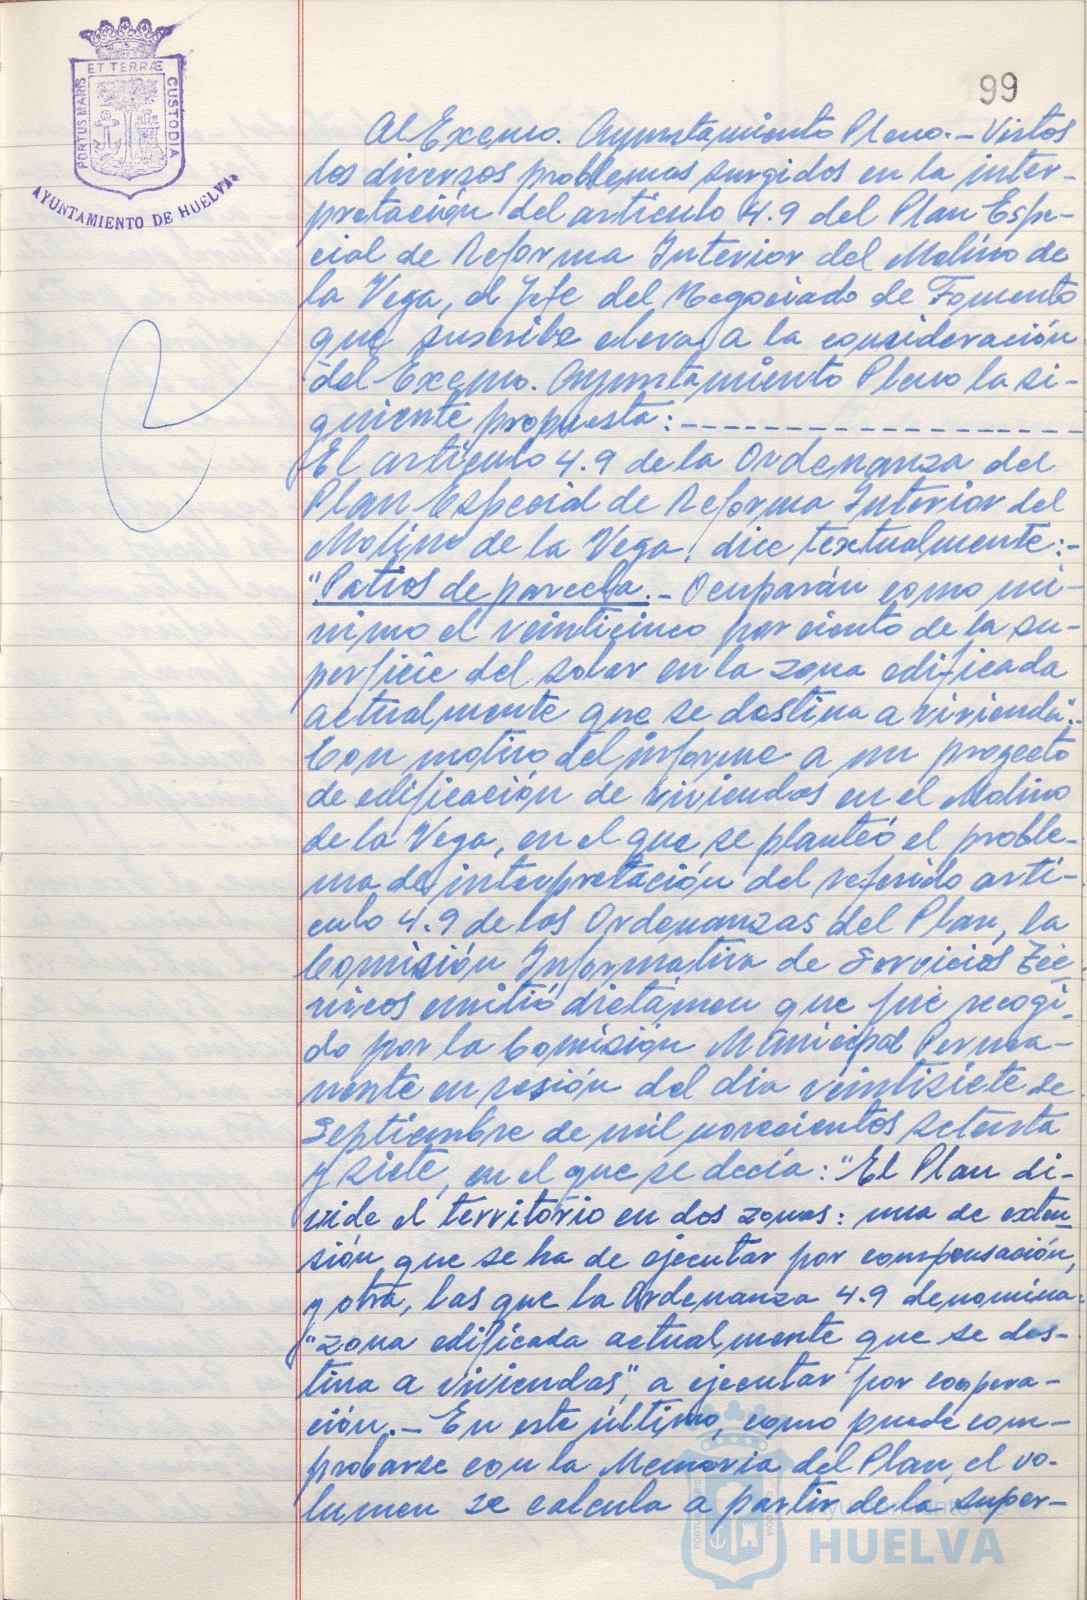 99
ET TERRÆ
PORTUS MARIS
CUSTODIA
AYUNTAMIENTO DE HUELVA
Al Excmo. Ayuntamiento Pleno.- Vistos
los diversos problemas surgidos en la inter-
pretación del artículo 4.9 del Plan Espe-
cial de Reforma Interior del Molino de
la Vega, el Jefe del Negociado de Fomento
que suscribe eleva a la consideración
del Excmo. Ayuntamiento Pleno la si-
guiente propuesta:-------------------
El artículo 4.9 de la Ordenanza del
Plan Especial de Reforma Interior del
Molino de la Vega, dice textualmente:-
"Patios de parcela.- Ocuparán como mí-
nimo el veinticinco por ciento de la su-
perficie del solar en la zona edificada
actualmente que se destina a vivienda".-
Con motivo del informe a un proyecto
de edificación de viviendas en el Molino
de la Vega, en el que se planteó el proble-
ma de interpretación del referido artí-
culo 4.9 de las Ordenanzas del Plan, la
Comisión Informativa de Servicios Téc-
nicos emitió dictámen que fué recogi-
do por la Comisión Municipal Perma-
nente en sesión del día veintisiete de
Septiembre de mil novecientos setenta
y siete, en el que se decía: "El Plan di-
vide el territorio en dos zonas: una de exten
sión, que se ha de ejecutar por compensación,
y otra, las que la Ordenanza 4.9 denomina:
"zona edificada actualmente que se des-
tina a viviendas", a ejecutar por coopera-
ción.- En este último, como puede com-
probarse con la Memoria del Plan, el vo-
lumen se calcula a partir de la super-
Ayuntamiento de
HUELVA